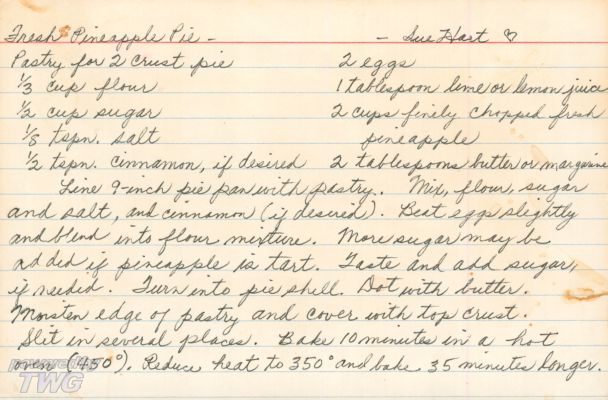 Fresh Pineapple Pie - - Sue Hart ♡
Pastry for 2 crust pie 2 eggs
1/3 cup flour 1 tablespoon lime or lemon juice
1/2 cup sugar 2 cups finely chopped fresh
1/8 tspn. salt pineapple
1/2 tspn. cinnamon, if desired 2 tablespoons butter or margarine
Line 9-inch pie pan with pastry. Mix, flour, sugar
and salt, and cinnamon (if desired). Beat eggs slightly
and blend into flour mixture. More sugar may be
added if pineapple is tart. Taste and add sugar,
if needed. Turn into pie shell. Dot with butter.
Moisten edge of pastry and cover with top crust.
Slit in several places. Bake 10 minutes in a hot
oven (450°). Reduce heat to 350° and bake 35 minutes longer.
powered by
TWG